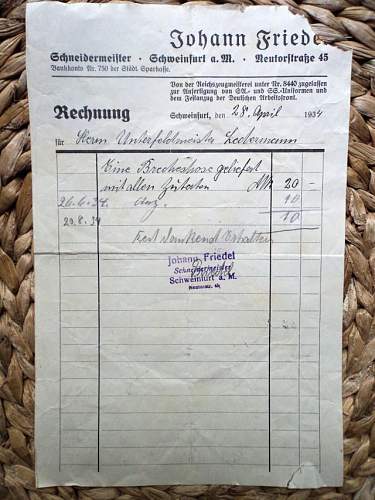 Johann Friedel
Schneidermeister · Schweinfurt a. M. · Neutorstraße 45
Bankkonto Nr. 750 der Städt. Sparkasse.
Von der Reichszeugmeisterei unter Nr. 8440 zugelassen
zur Anfertigung von SA- und SS-Uniformen und
dem Festanzug der Deutschen Arbeitsfront.
Rechnung
Schweinfurt, den 28. April 1934
für Herrn Unterfeldmeister Ledermann
Eine Breecheshose geliefert
mit allen Zutaten RM 20 –
26.6.34. 10 –
29.8.34 10
Rest dankend erhalten
Johann Friedel
Schneidermeister
Schweinfurt a. M.
Neutorstr. 45